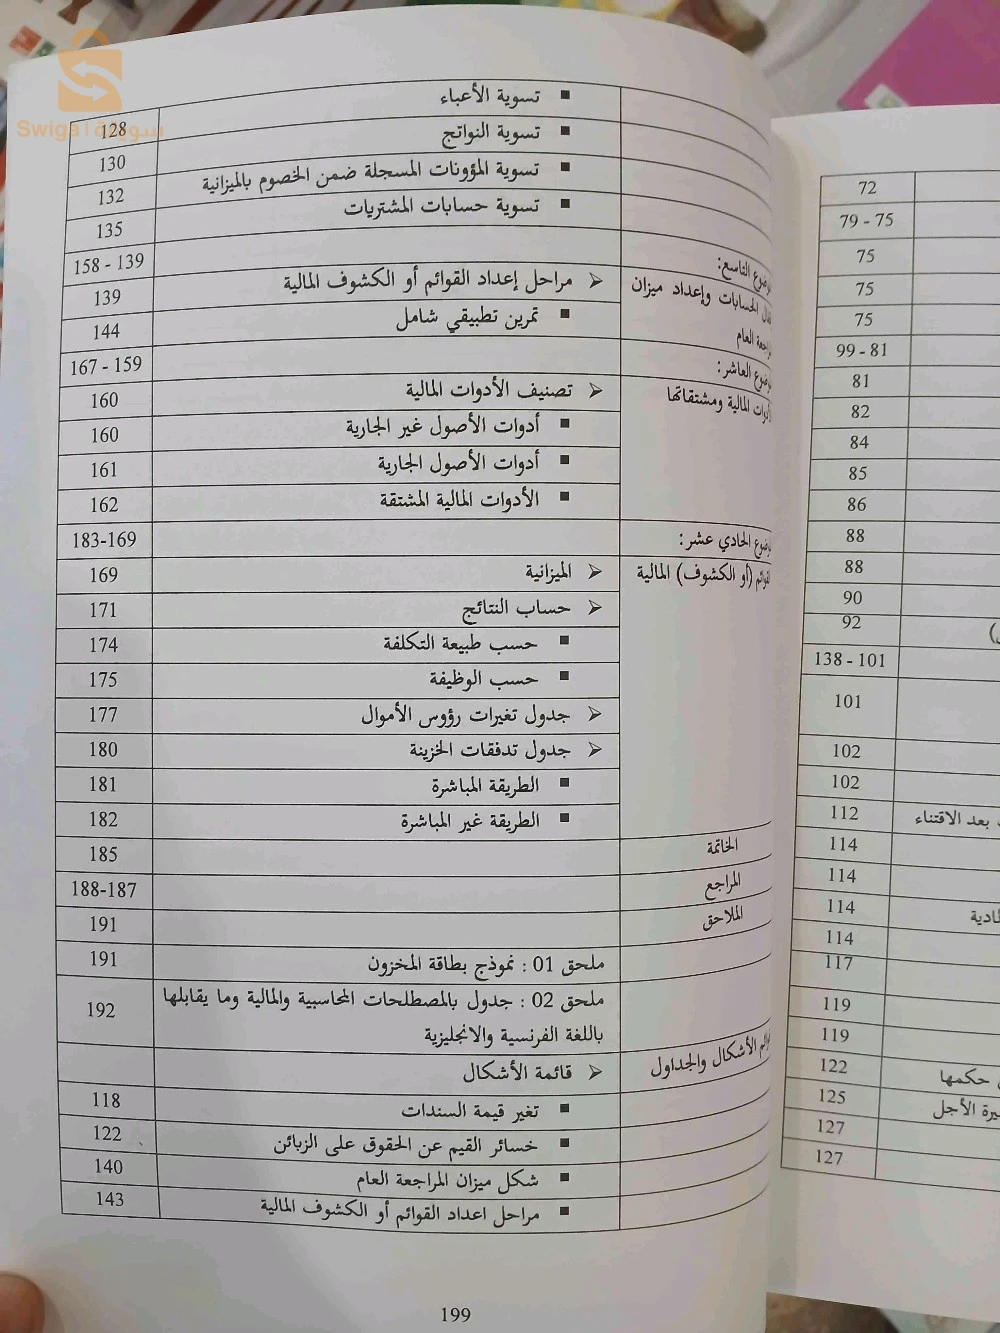 سويقة | Swiga
72
79 - 75
75
75
75
99 - 81
81
82
84
85
86
88
88
90
92
138 - 101
101
102
102
بعد الاقتناء 112
114
114
114
114
117
119
119
حكمها 122
الأجل 125
127
127
▪ تسوية الأعباء 128
▪ تسوية النواتج 130
▪ تسوية المؤونات المسجلة ضمن الخصوم بالميزانية 132
▪ تسوية حسابات المشتريات 135
التاسع: 158 - 139
الحسابات وإعداد ميزان ➢ مراحل إعداد القوائم أو الكشوف المالية 139
العام ▪ تمرين تطبيقي شامل 144
العاشر: 167 - 159
المالية ومشتقاتها ➢ تصنيف الأدوات المالية 160
▪ أدوات الأصول غير الجارية 160
▪ أدوات الأصول الجارية 161
▪ الأدوات المالية المشتقة 162
الحادي عشر: 183-169
(أو الكشوف) المالية ➢ الميزانية 169
➢ حساب النتائج 171
▪ حسب طبيعة التكلفة 174
▪ حسب الوظيفة 175
➢ جدول تغيرات رؤوس الأموال 177
➢ جدول تدفقات الخزينة 180
▪ الطريقة المباشرة 181
▪ الطريقة غير المباشرة 182
الخاتمة 185
المراجع 188-187
الملاحق 191
ملحق 01 : نموذج بطاقة المخزون 191
ملحق 02 : جدول بالمصطلحات المحاسبية والمالية وما يقابلها
باللغة الفرنسية والانجليزية 192
الأشكال والجداول ➢ قائمة الأشكال
▪ تغير قيمة السندات 118
▪ خسائر القيم عن الحقوق على الزبائن 122
▪ شكل ميزان المراجعة العام 140
▪ مراحل اعداد القوائم أو الكشوف المالية 143
199